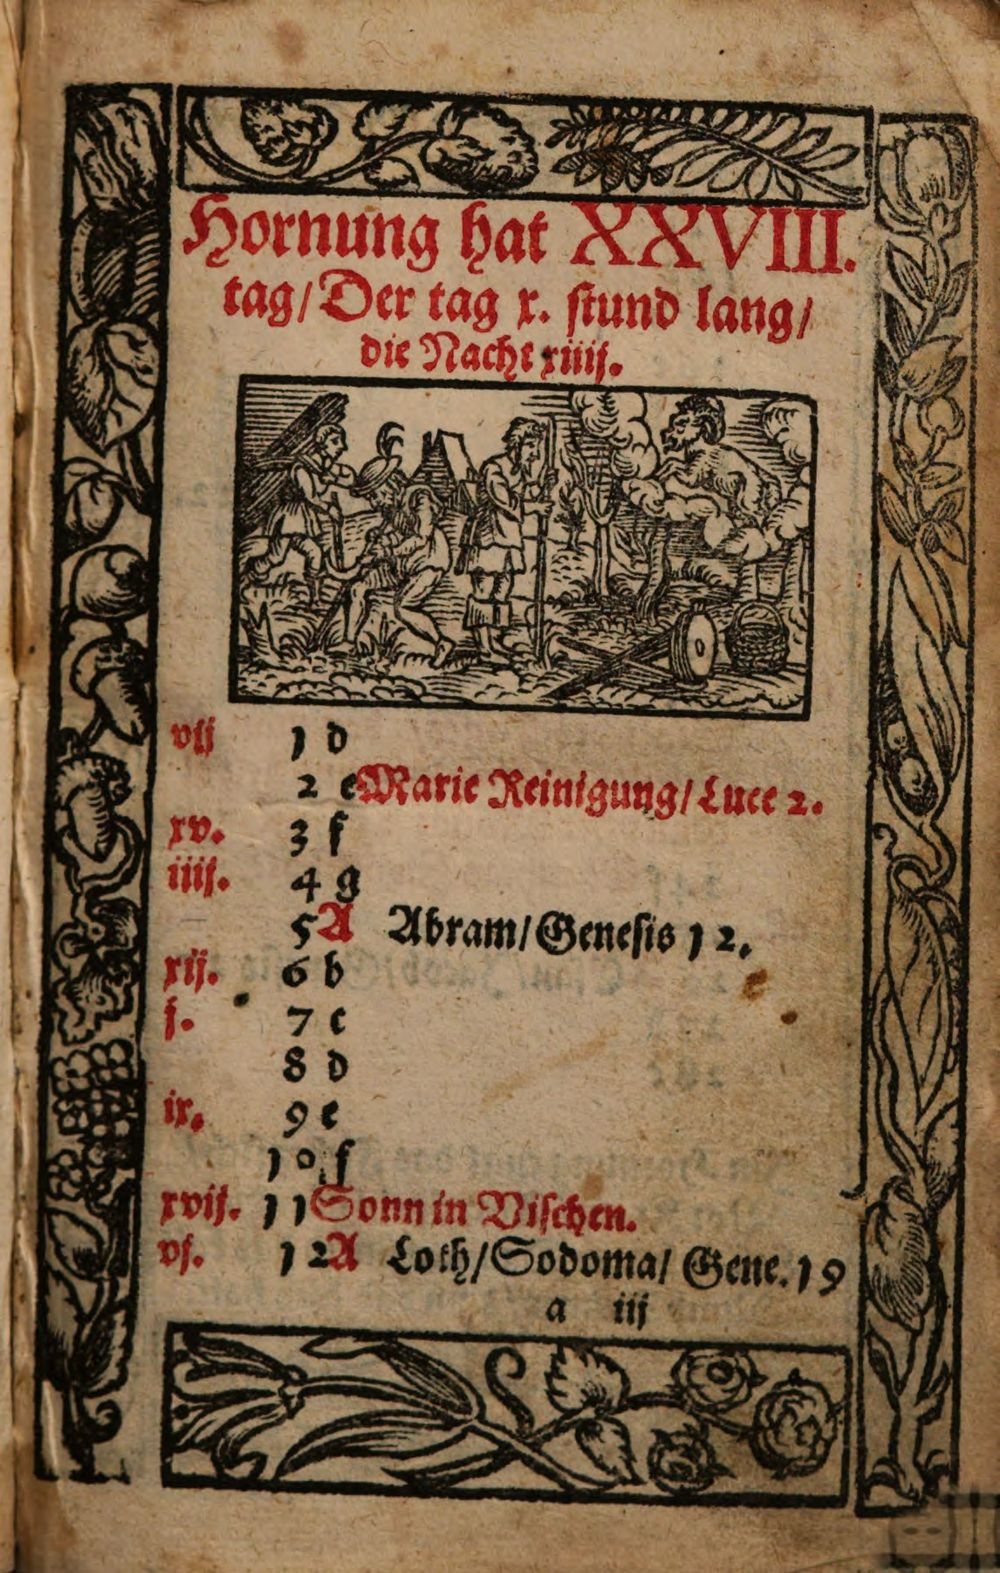 Hornung hat XXVIII.
tag/ Der tag x. stund lang/
die Nacht xiiij.
vij 1 d
2 e Marie Reinigung/ Luce 2.
xv. 3 f
iiij. 4 g
5 A Abram/ Genesis 12.
xij. 6 b
j. 7 c
8 d
ix. 9 e
10 f
xvij. 11 Sonn in Vischen.
vj. 12 A Loth/ Sodoma/ Gene. 19
a iij